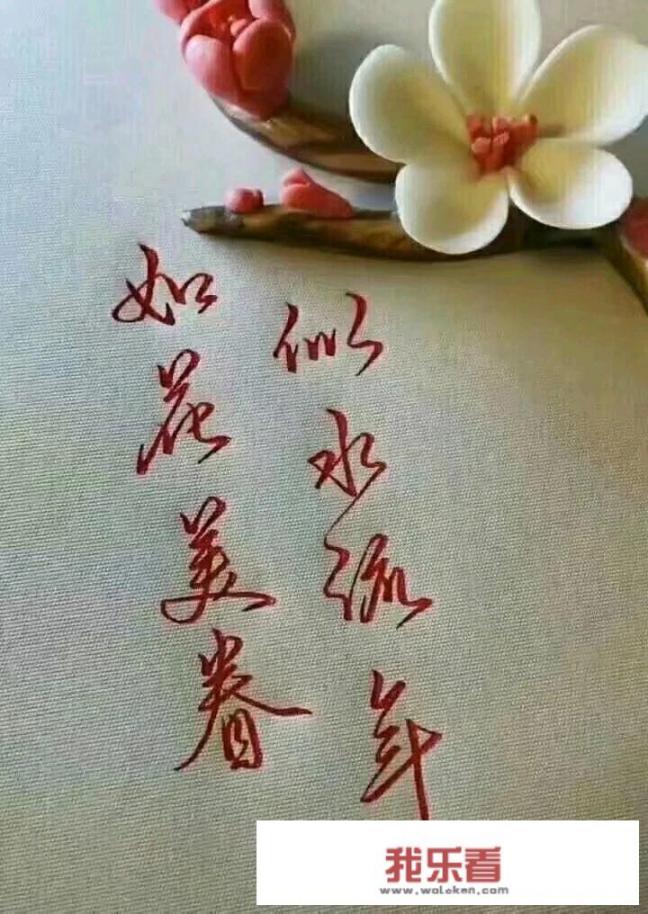 如花美眷
似水流年
我乐看
www.woleken.com